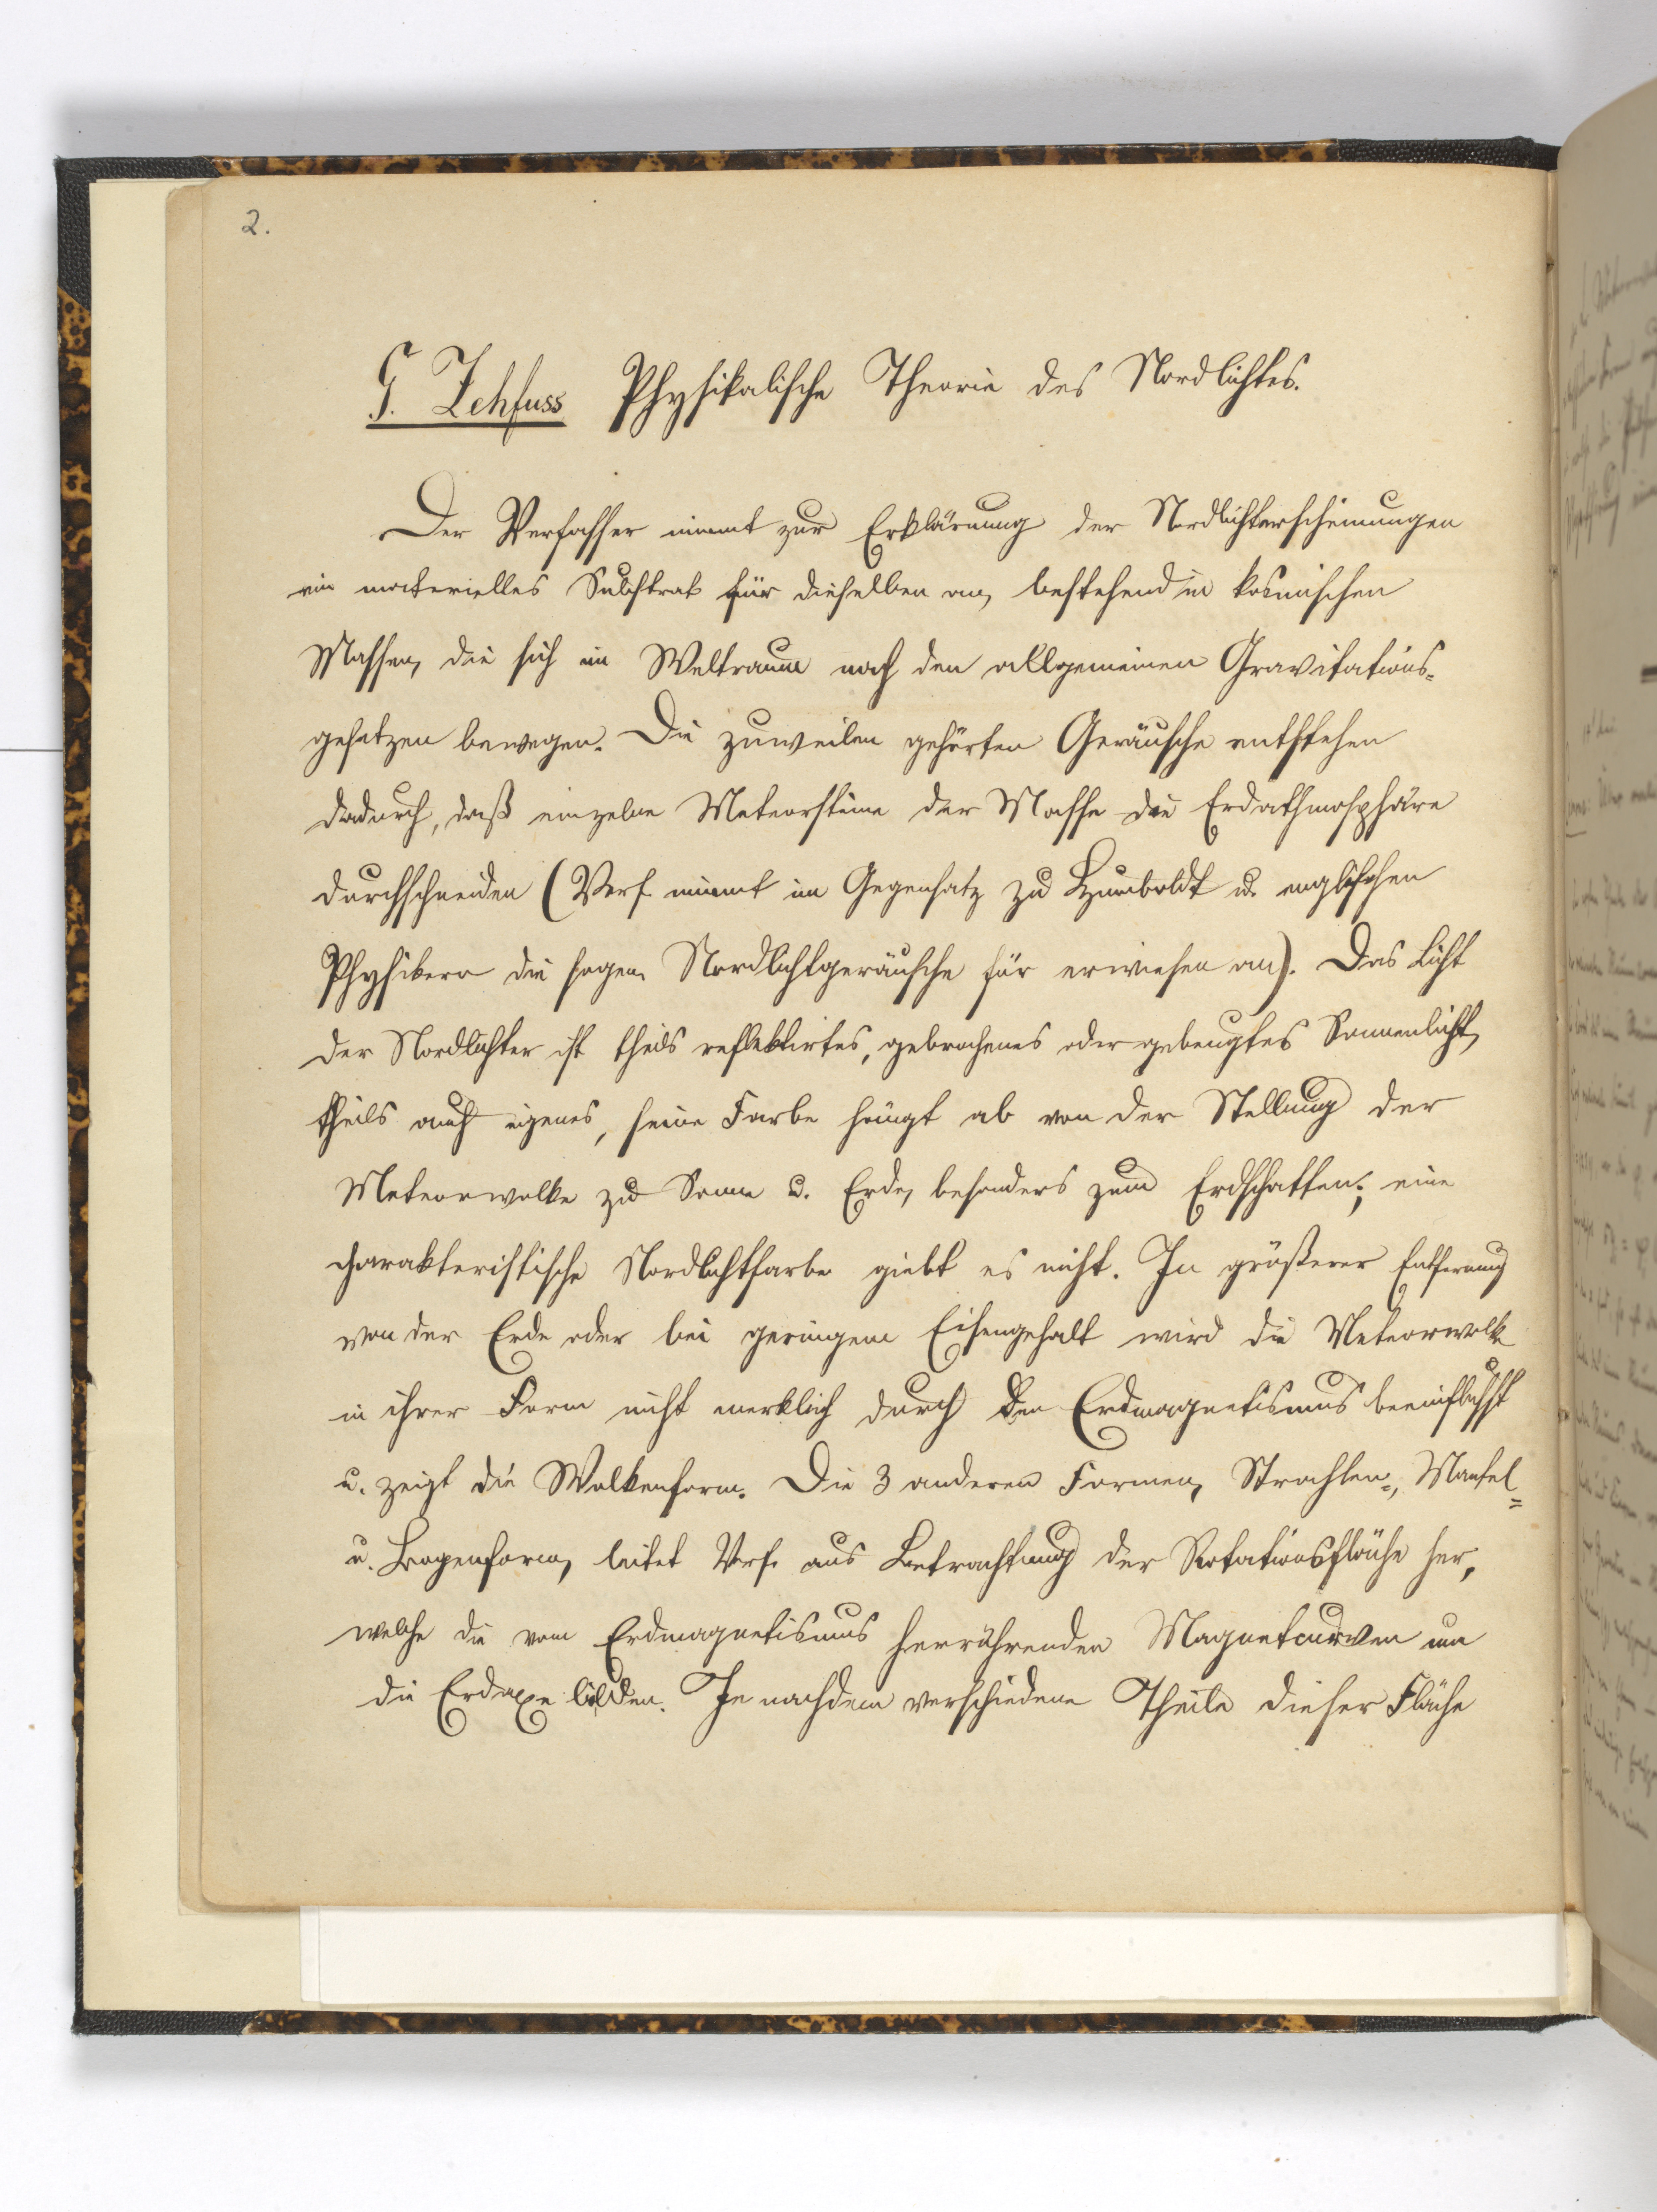 2.
G. Zehfuss Physikalische Theorie des Nordlichtes.
Der Verfasser nimmt zur Erklärung der Nordlichterscheinungen
ein materielles Substrat für dieselben an, bestehend in kosmischen
Massen, die sich im Weltraum nach den allgemeinen Gravitations-
gesetzen bewegen. Die zuweilen gehörten Geräusche entstehen
dadurch, daß einzelne Meteorsteine der Masse die Erdathmosphäre
durchschneiden (Verf. nimmt im Gegensatz zu Humboldt u. englischen
Physikern die sogen. Nordlichtgeräusche für erwiesen an). Das Licht
der Nordlichter ist theils reflektirtes, gebrochenes oder gebeugtes Sonnenlicht,
theils auch eigenes, seine Farbe hängt ab von der Stellung der
Meteorwolke zu Sonne u. Erde, besonders zum Erdschatten; eine
charakteristische Nordlichtfarbe giebt es nicht. In größerer Entfernung
von der Erde oder bei geringem Eisengehalt wird die Meteorwolke
in ihrer Form nicht merklich durch den Erdmagnetismus beeinflußt
u. zeigt die Wolkenform. Die 3 anderen Formen, Strahlen-, Mantel-
u. Bogenform, leitet Verf. aus Betrachtung der Rotationsfläche her,
welche die vom Erdmagnetismus herrührenden Magnetcurven um
die Erdaxe bilden. Je nachdem verschiedene Theile dieser Fläche